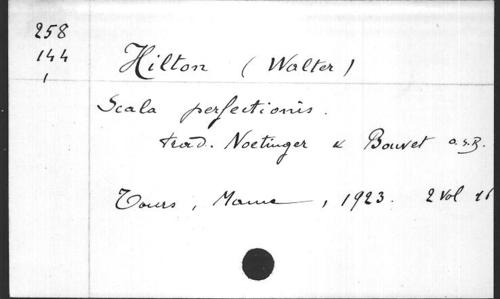 258
144
1
Hilton (Walter)
Scala perfectionis.
trad. Noetinger & Bouvet o.s.B.
Tours, Mame, 1923. 2 Vol